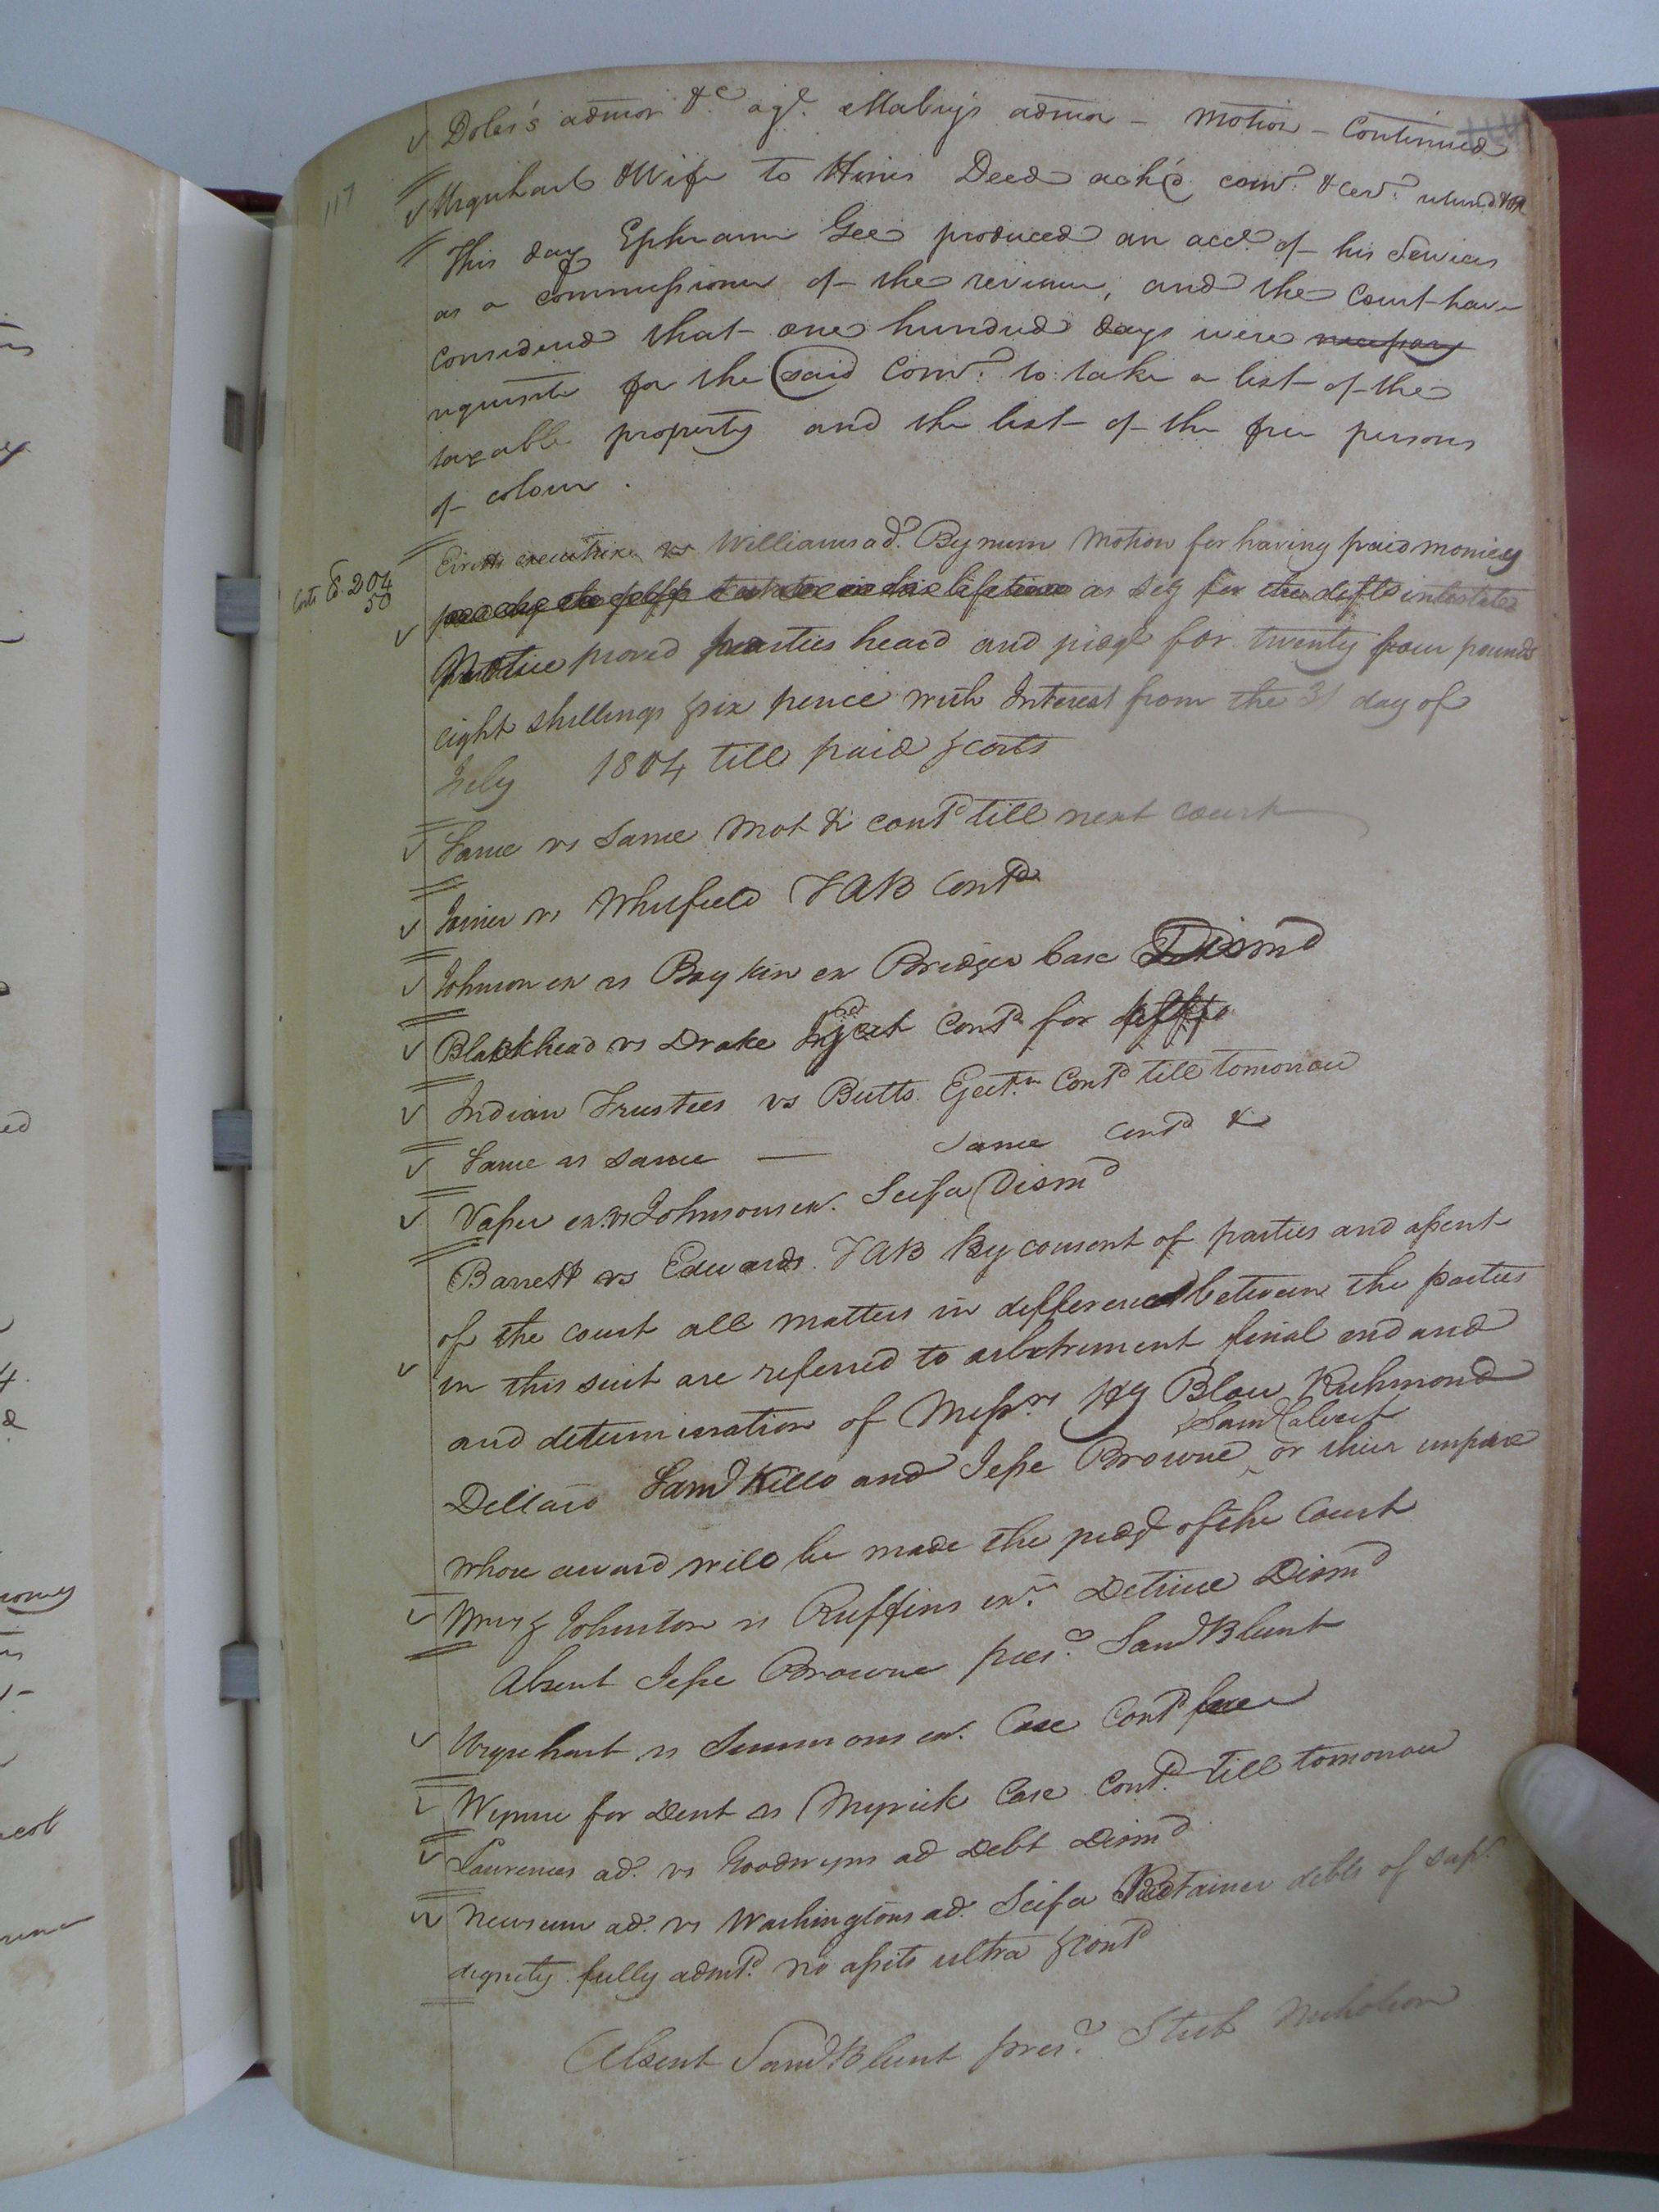 117
Doles's admor &c agt. Mabry's admor - Motion - Continued
Urquhart & Wife to Hines Deed ack'd com. & cer. return'd & OR
This day Ephraim Gee produced an acct. of his Services
as a commissioner of the revenue, and the Court have
considered that one hundred days were necessary
requisite for the said Comr. to take a list of the
taxable property and the list of the free persons
of colour.
executrix vs Williams ad. Bynum Motion for having paid monies
Costs £. 204
50
testator in his lifetime as sey for the defts intestate
Notice proved parties heard and judgt for twenty four pounds
eight shillings & six pence with Interest from the 31 day of
July 1804 till paid & costs
Same vs Same Mot & contd till next court
Joiner vs Whitfield TAB Contd
Johnson ex vs Boykin ex Bridger Case Dismd
Blackhead vs Drake Contd for
Indian Trustees vs Butts. Ejectm. Contd till tomorrow
Same vs Same — Same contd &
Vasser ex. vs Johnsons ex. Scifa Dismd
Barrett vs Edwards. TAB By consent of parties and assent
of the court all matters in difference between the parties
in this suit are referred to arbitrement final end and
and determination of Messrs. Hy Blow Richmond
& Saml Calvert
Dillard Saml Kello and Jesse Browne or their umpire
whose award will be made the judgt of the Court
Murg Johnston vs Ruffins exr. Detinue Dismd
Absent Jesse Browne prest. Saml Blunt
Urquhart vs Simmons ex. Case Contd
Wynne for Dent vs Myrick Case Contd. till tomorrow
Lawrences ad. vs Goodwyns ad Debt Dismd
Newsum ad. vs Washingtons ad. Scifa Retainer debts of supr.
dignity fully admd. no assits ultra & contd
Absent Saml Blunt prest. Nicholson